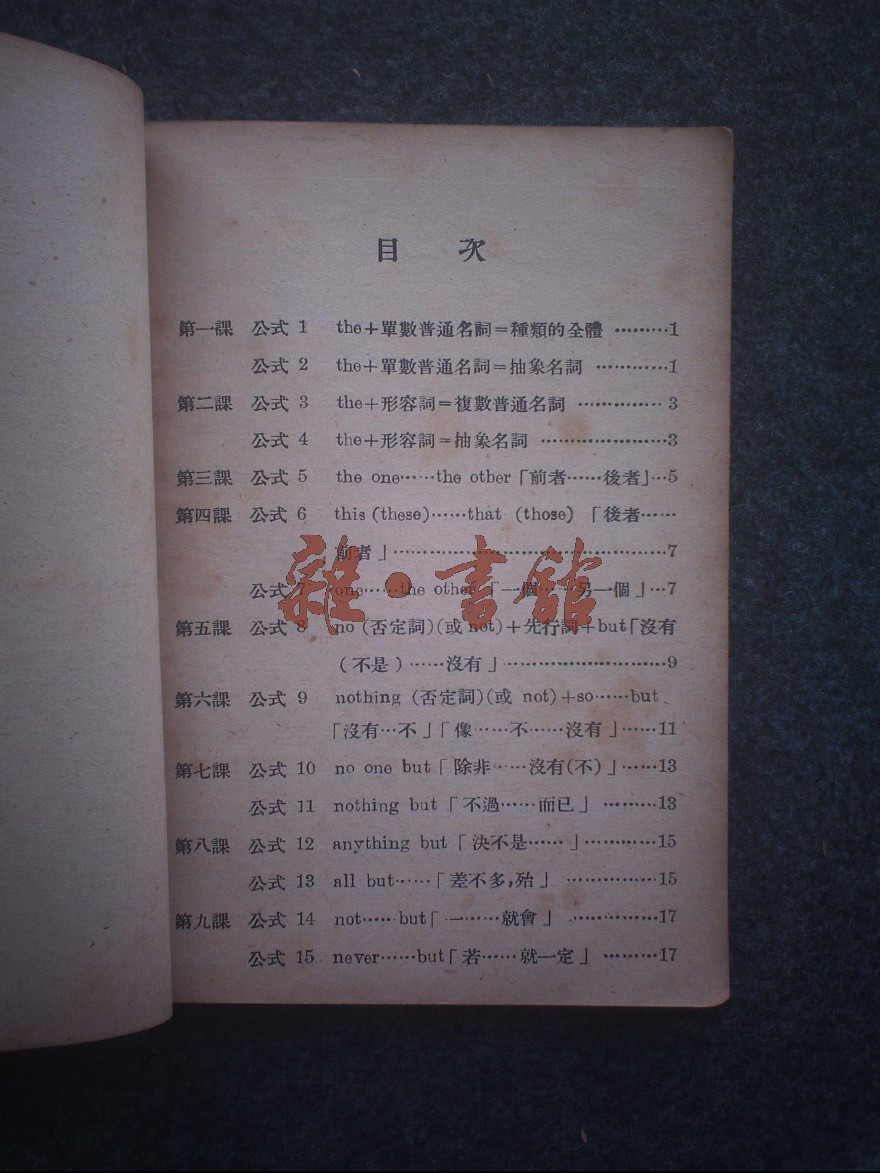 目 次
第一課 公式 1 the+單數普通名詞=種類的全體 ………1
公式 2 the+單數普通名詞=抽象名詞 …………1
第二課 公式 3 the+形容詞=複數普通名詞 …………… 3
公式 4 the+形容詞=抽象名詞 ……………………3
第三課 公式 5 the one……the other「前者……後者」…5
第四課 公式 6 this (these)……that (those) 「後者……
前者」………………………………………………7
公式 7 one……the other「一個……另一個」…7
第五課 公式 8 no (否定詞)(或 not)+先行詞+but「沒有
(不是)……沒有」…………………………9
第六課 公式 9 nothing (否定詞)(或 not)+so……but
「沒有…不」「像……不……沒有」……11
第七課 公式 10 no one but「除非……沒有(不)」……13
公式 11 nothing but「不過……而已」 ………13
第八課 公式 12 anything but「決不是……」…………15
公式 13 all but……「差不多,殆」 ………………15
第九課 公式 14 not……but「一………就會」 ……………17
公式 15 never……but「若……就一定」 ………17
雜·書館